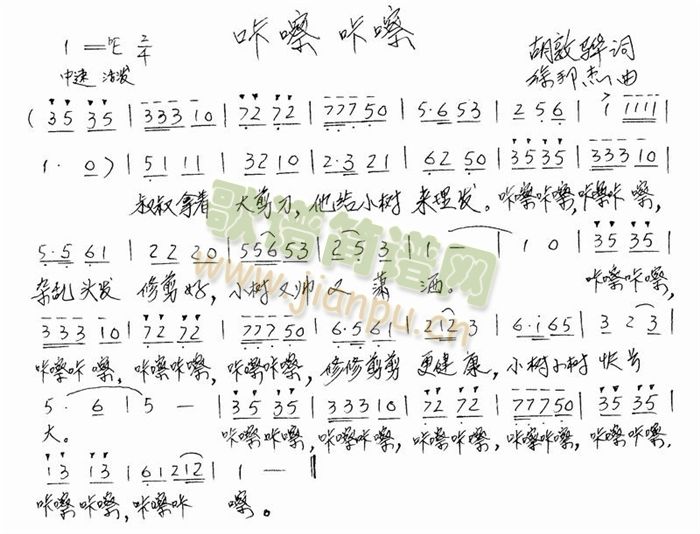 咔嚓咔嚓
1=♭E 2/4
胡敦骅词
中速 活发
徐邦杰曲
(35 35 | 333 10 | 72 72 | 77750 | 5·653 | 256 | 1 1111 |
1· 0) | 51 11 | 32 10 | 2·3 21 | 62 50 | 35 35 | 333 10 |
叔叔拿着 大剪刀,他给小树 来理发。咔嚓咔嚓,咔嚓咔 嚓,
5·5 61 | 22 20 | 556 53 | 253 | 1 — | 1 0 | 35 35 |
杂乱头发 修剪好,小树又帅又 潇 洒。 咔嚓咔嚓,
333 10 | 72 72 | 777 50 | 6·561 | 2123 | 6·i65 | 3 23 |
咔嚓咔 嚓,咔嚓咔嚓,咔嚓咔嚓,修修剪剪 更健 康,小树小树 快长
5· 6 | 5 — | 35 35 | 333 10 | 72 72 | 77750 | 35 35 |
大。 咔嚓咔嚓,咔嚓咔嚓,咔嚓咔嚓,咔嚓咔嚓,咔嚓咔嚓,
i3 i3 | 61212 | 1 — ‖
咔嚓咔嚓,咔嚓咔 嚓。
歌谱简谱网
www.jianpu.cn